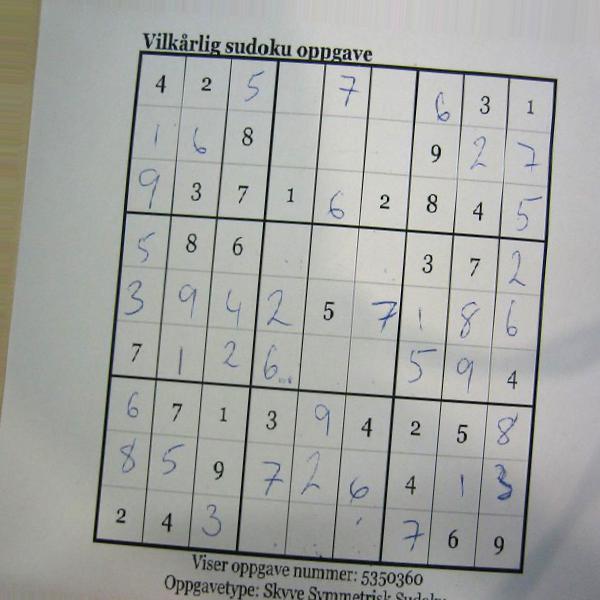 Vilkårlig sudoku oppgave
4 2 5 7 6 3 1
1 6 8 9 2 7
9 3 7 1 6 2 8 4 5
5 8 6 3 7 2
3 9 4 2 5 7 1 8 6
7 1 2 6 5 9 4
6 7 1 3 9 4 2 5 8
8 5 9 7 2 6 4 1 3
2 4 3 7 6 9
Viser oppgave nummer: 5350360
Oppgavetype: Skyve Symmetrisk